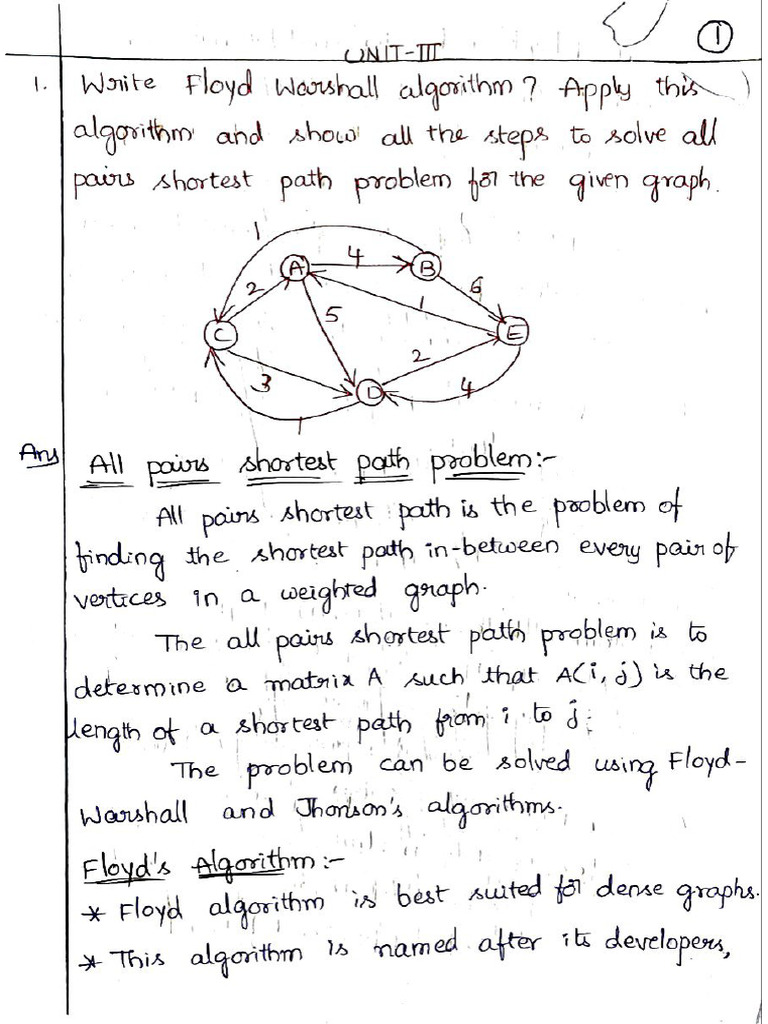 1
UNIT-III
1. Write Floyd Warshall algorithm? Apply this
algorithm and show all the steps to solve all
pairs shortest path problem for the given graph.
1
A 4 B
2 6
5 1
C E
2
3 D 4
1
Ans All pairs shortest path problem:-
All pairs shortest path is the problem of
finding the shortest path in-between every pair of
vertices in a weighted graph.
The all pairs shortest path problem is to
determine a matrix A such that A(i, j) is the
length of a shortest path from i to j.
The problem can be solved using Floyd-
Warshall and Jhonson's algorithms.
Floyd's Algorithm:-
* Floyd algorithm is best suited for dense graphs.
* This algorithm is named after its developers,